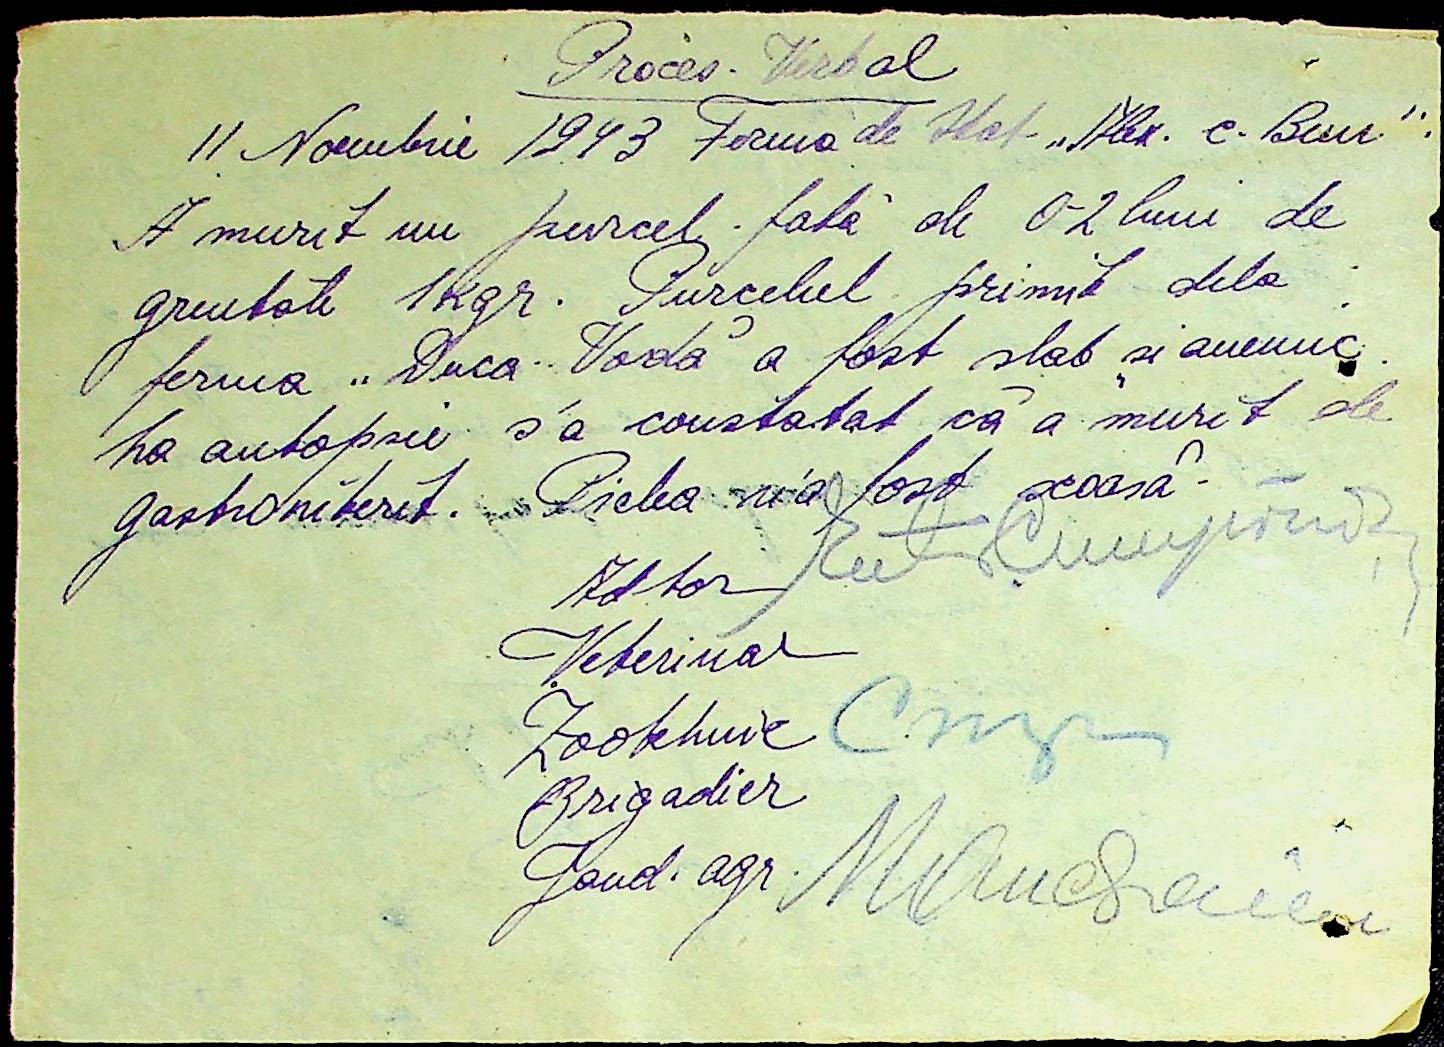 Proces-Verbal
11 Noembrie 1943 Ferma de Stat „Alex. c. Bun".
A murit un purcel fată de 02 luni de
greutate 1 kgr. Purcelul primit dela
ferma „Duca-Vodă" a fost slab și anemic.
La autopsie s'a constatat că a murit de
gastroniterit. Pielea n'a fost scoasă.
Adtor
Veterinar
Zootehnic
Brigadier
Jand. agr.